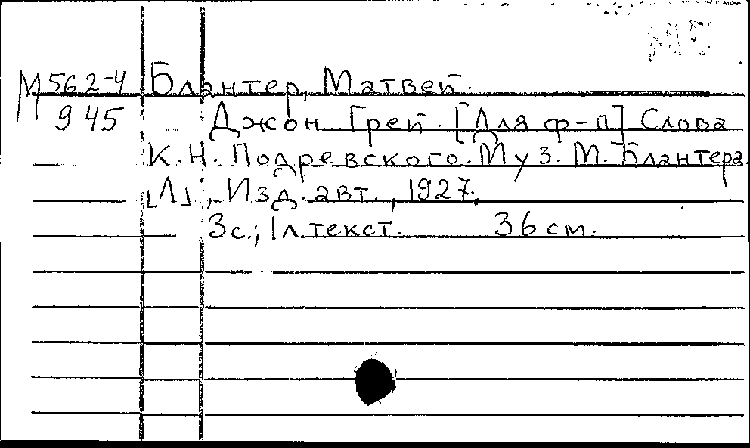 М 562-4 Блантер, Матвей.
945 Джон Грей. [Для ф-п] Слова
К. Н. Подревского. Муз. М. Блантера.
[Л], Изд. авт., 1927.
3 с.; 1 л. текст. 36 см.